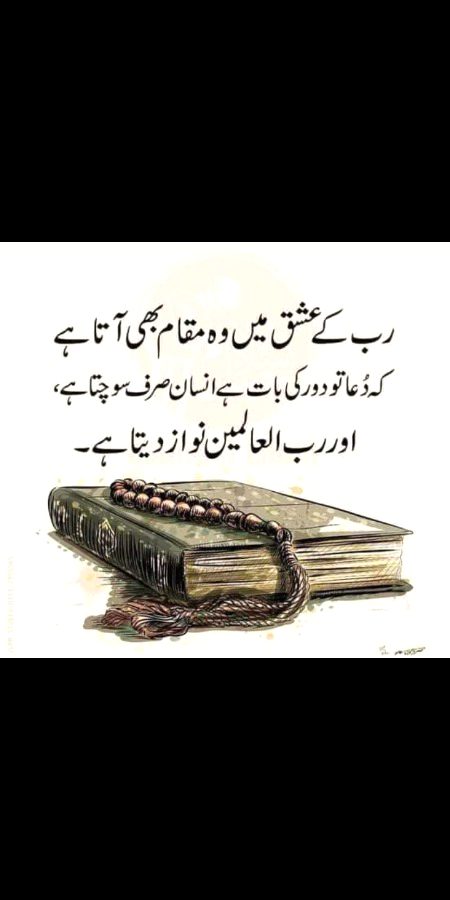 رب کے عشق میں وہ مقام بھی آتا ہے
کہ دُعا تو دور کی بات ہے انسان صرف سوچتا ہے،
اور رب العالمین نواز دیتا ہے۔